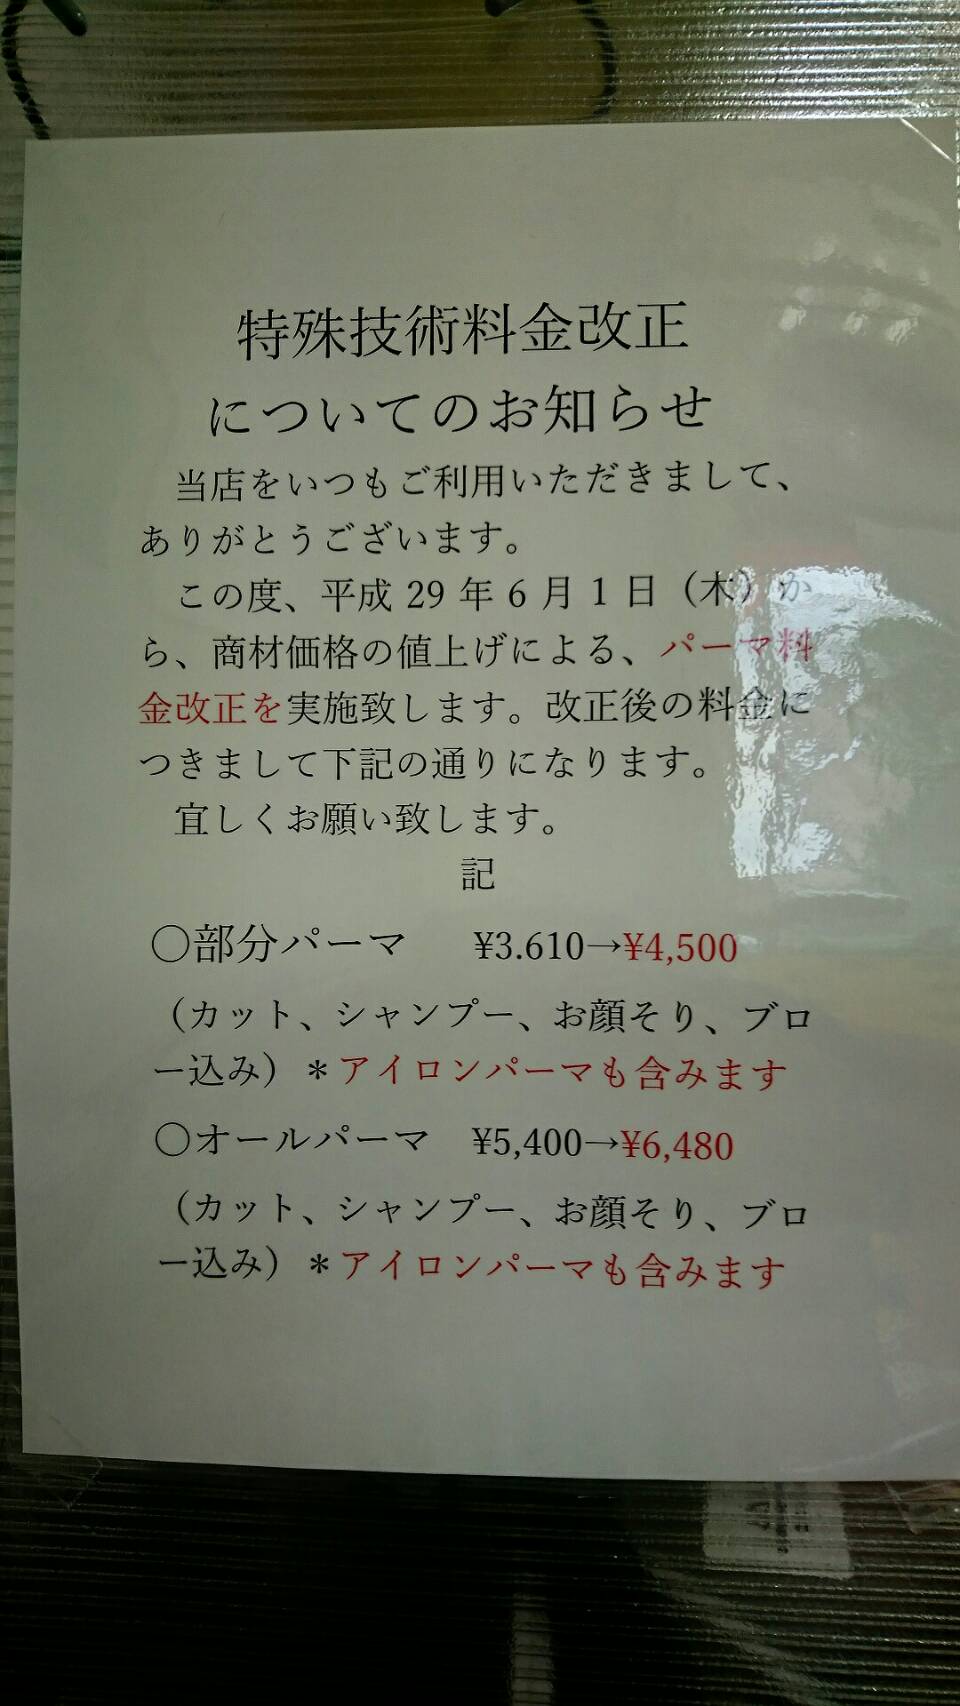 特殊技術料金改正
についてのお知らせ
当店をいつもご利用いただきまして、
ありがとうございます。
この度、平成 29 年 6 月 1 日（木）か
ら、商材価格の値上げによる、パーマ料
金改正を実施致します。改正後の料金に
つきまして下記の通りになります。
宜しくお願い致します。
記
〇部分パーマ　¥3.610→¥4,500
（カット、シャンプー、お顔そり、ブロ
ー込み）＊アイロンパーマも含みます
〇オールパーマ　¥5,400→¥6,480
（カット、シャンプー、お顔そり、ブロ
ー込み）＊アイロンパーマも含みます